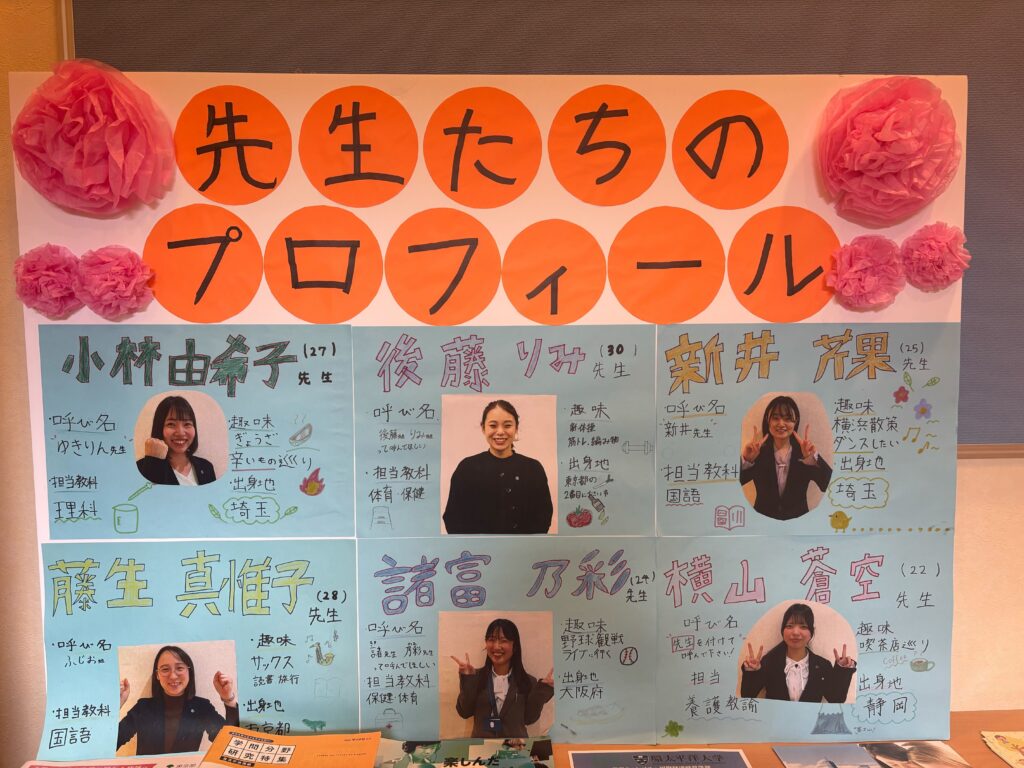 先生たちの
プロフィール
小林由希子(27)
先生
・呼び名
"ゆきりん"先生
・担当教科
理科
・趣味
ぎょうざ
辛いもの巡り
・出身地
埼玉
後藤 りみ(30)
先生
・呼び名
って呼んでほしい
・担当教科
体育・保健
・趣味
筋トレ、編み物
・出身地
東京都の
新井 芹果(25)
先生
・呼び名
"新井先生"
・担当教科
国語
・趣味
横浜散策
ダンスしたい
・出身地
埼玉
藤生 真惟子(28)
先生
・呼び名
ふじお先生
・担当教科
国語
・趣味
サックス
読書 旅行
・出身地
京都
諸富 乃彩(24)
先生
・呼び名
諸先生 乃彩先生
って呼んでほしい
担当教科
保健・体育
・趣味
野球観戦
ライブに行く
・出身地
大阪府
横山 蒼空(22)
先生
・呼び名
"先生"を付けて
呼んで下さい!
・担当
養護教諭
・趣味
喫茶店巡り
coffee
・出身地
静岡
学問分野
研究特集
楽しんだ
環太平洋大学